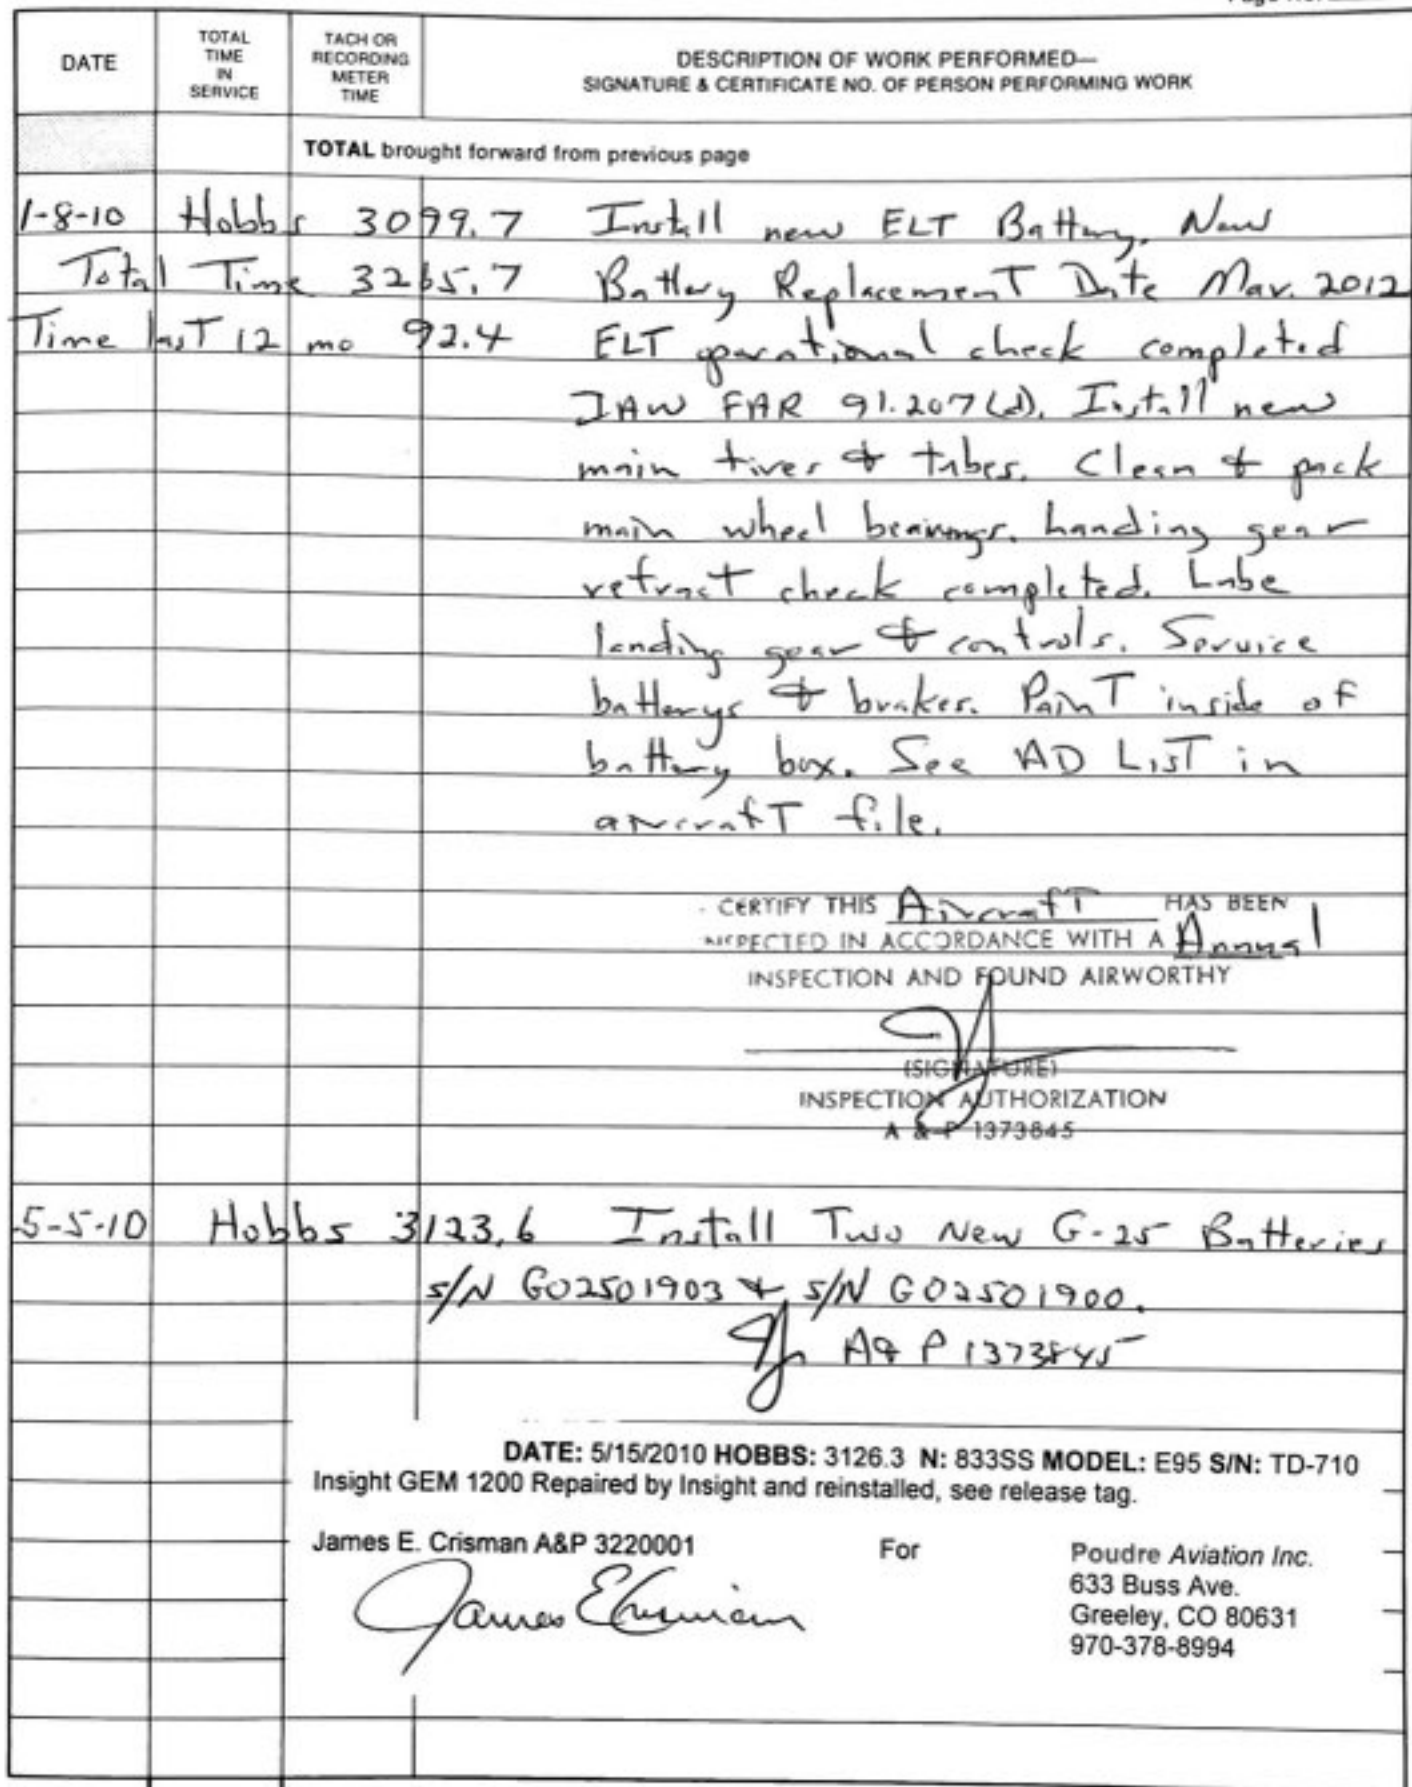 DATE
TOTAL TIME IN SERVICE
TACH OR RECORDING METER TIME
DESCRIPTION OF WORK PERFORMED—
SIGNATURE & CERTIFICATE NO. OF PERSON PERFORMING WORK
TOTAL brought forward from previous page
1-8-10 Hobbs 3099.7 Install new ELT Battery. New
Total Time 3265.7 Battery Replacement Date Mar. 2012
Time last 12 mo 92.4 ELT operational check completed
IAW FAR 91.207(d). Install new
main tires & tubes. Clean & pack
main wheel bearings. Landing gear
retract check completed. Lube
landing gear & controls. Service
batterys & brakes. Paint inside of
battery box. See AD List in
aircraft file.
CERTIFY THIS Aircraft HAS BEEN
INSPECTED IN ACCORDANCE WITH A Annual
INSPECTION AND FOUND AIRWORTHY
(SIGNATURE)
INSPECTION AUTHORIZATION
A & P 1373845
5-5-10 Hobbs 3123.6 Install Two New G-25 Batteries
S/N G02501903 & S/N G02501900.
A & P 1373845
DATE: 5/15/2010 HOBBS: 3126.3 N: 833SS MODEL: E95 S/N: TD-710
Insight GEM 1200 Repaired by Insight and reinstalled, see release tag.
James E. Crisman A&P 3220001 For Poudre Aviation Inc.
633 Buss Ave.
Greeley, CO 80631
970-378-8994
James E Crisman